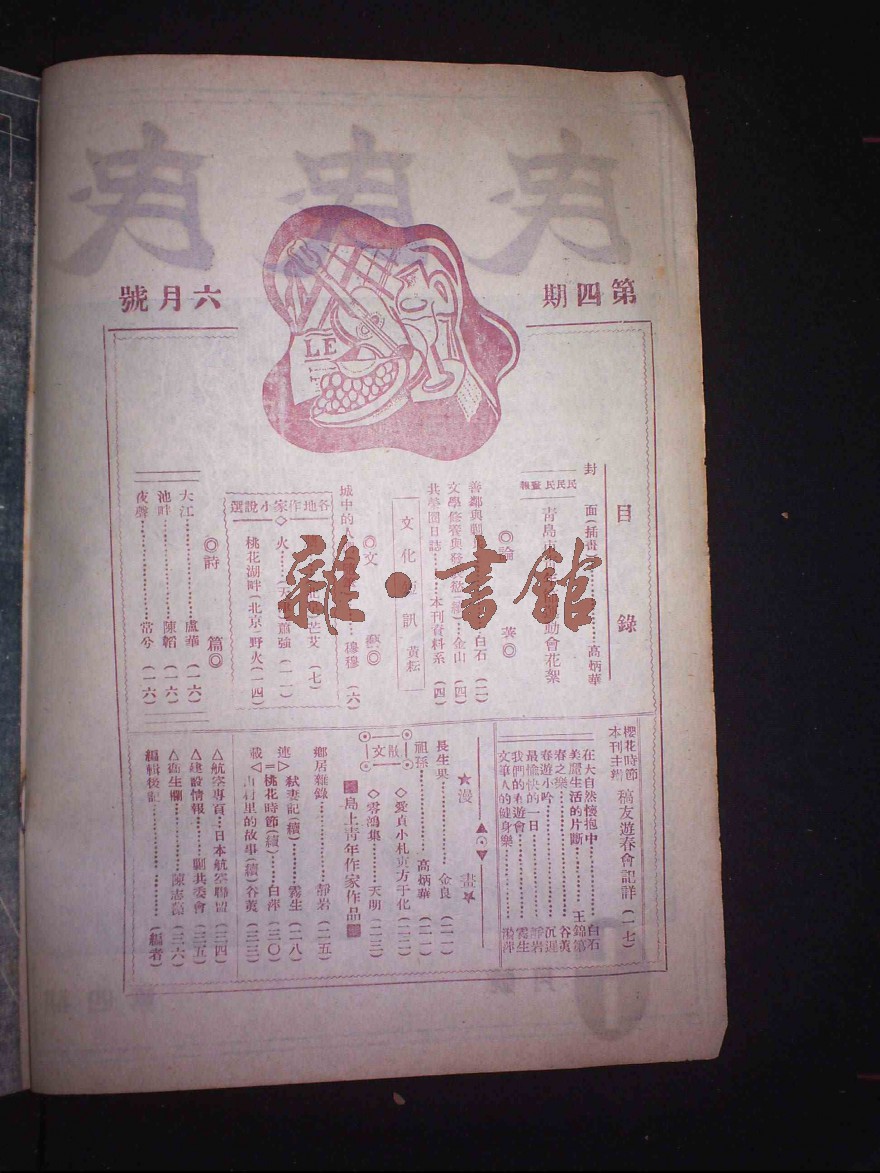 第四期
六月號
LE
目 錄
封面(插畫)………高炳華
民民民 畫報
青島市 動會花絮
◎論 著◎
善鄰與 白石(二)
文學修養與 (續)…金山(四)
共榮圈日誌………本刊資料系(四)
文化 訊 黃耘
◎文 藝◎
城中的人 穆穆(六)
各地作家小說選
北 芒艾(七)
◇火……(天 )蕭強(一一)
桃花湖畔(北京)野火(一四)
◎詩 篇◎
大江………盧華(一六)
池畔………陳韜(一六)
夜聲………常兮(一六)
櫻花時節
本刊主辦
稿友遊春會記詳(一七)
在大自然懷抱中………白石
美麗生活的片斷………王錦
春之樂………谷萸
春遊小吟………沉遲
最愉快的一日………靜岩
我們的春遊會………霧生
文筆人的健身樂………萍
★漫 畫★
長生果………金良(二一)
祖孫………高炳華(二一)
散文
◇愛貞小札 方于化(二二)
◇零鴻集………天明(二三)
島上青年作家作品
鄉居雜錄………靜岩(二五)
連載
弒妻記(續)………霧生(二八)
桃花時節(續)……白萍(三〇)
山村里的故事(續)谷萸(三三)
△航空專頁…日本航空聯盟(三四)
△建設情報………剿共委會(三五)
△衛生欄………陳志藻(三六)
編輯後記………(編者)
雜·書館